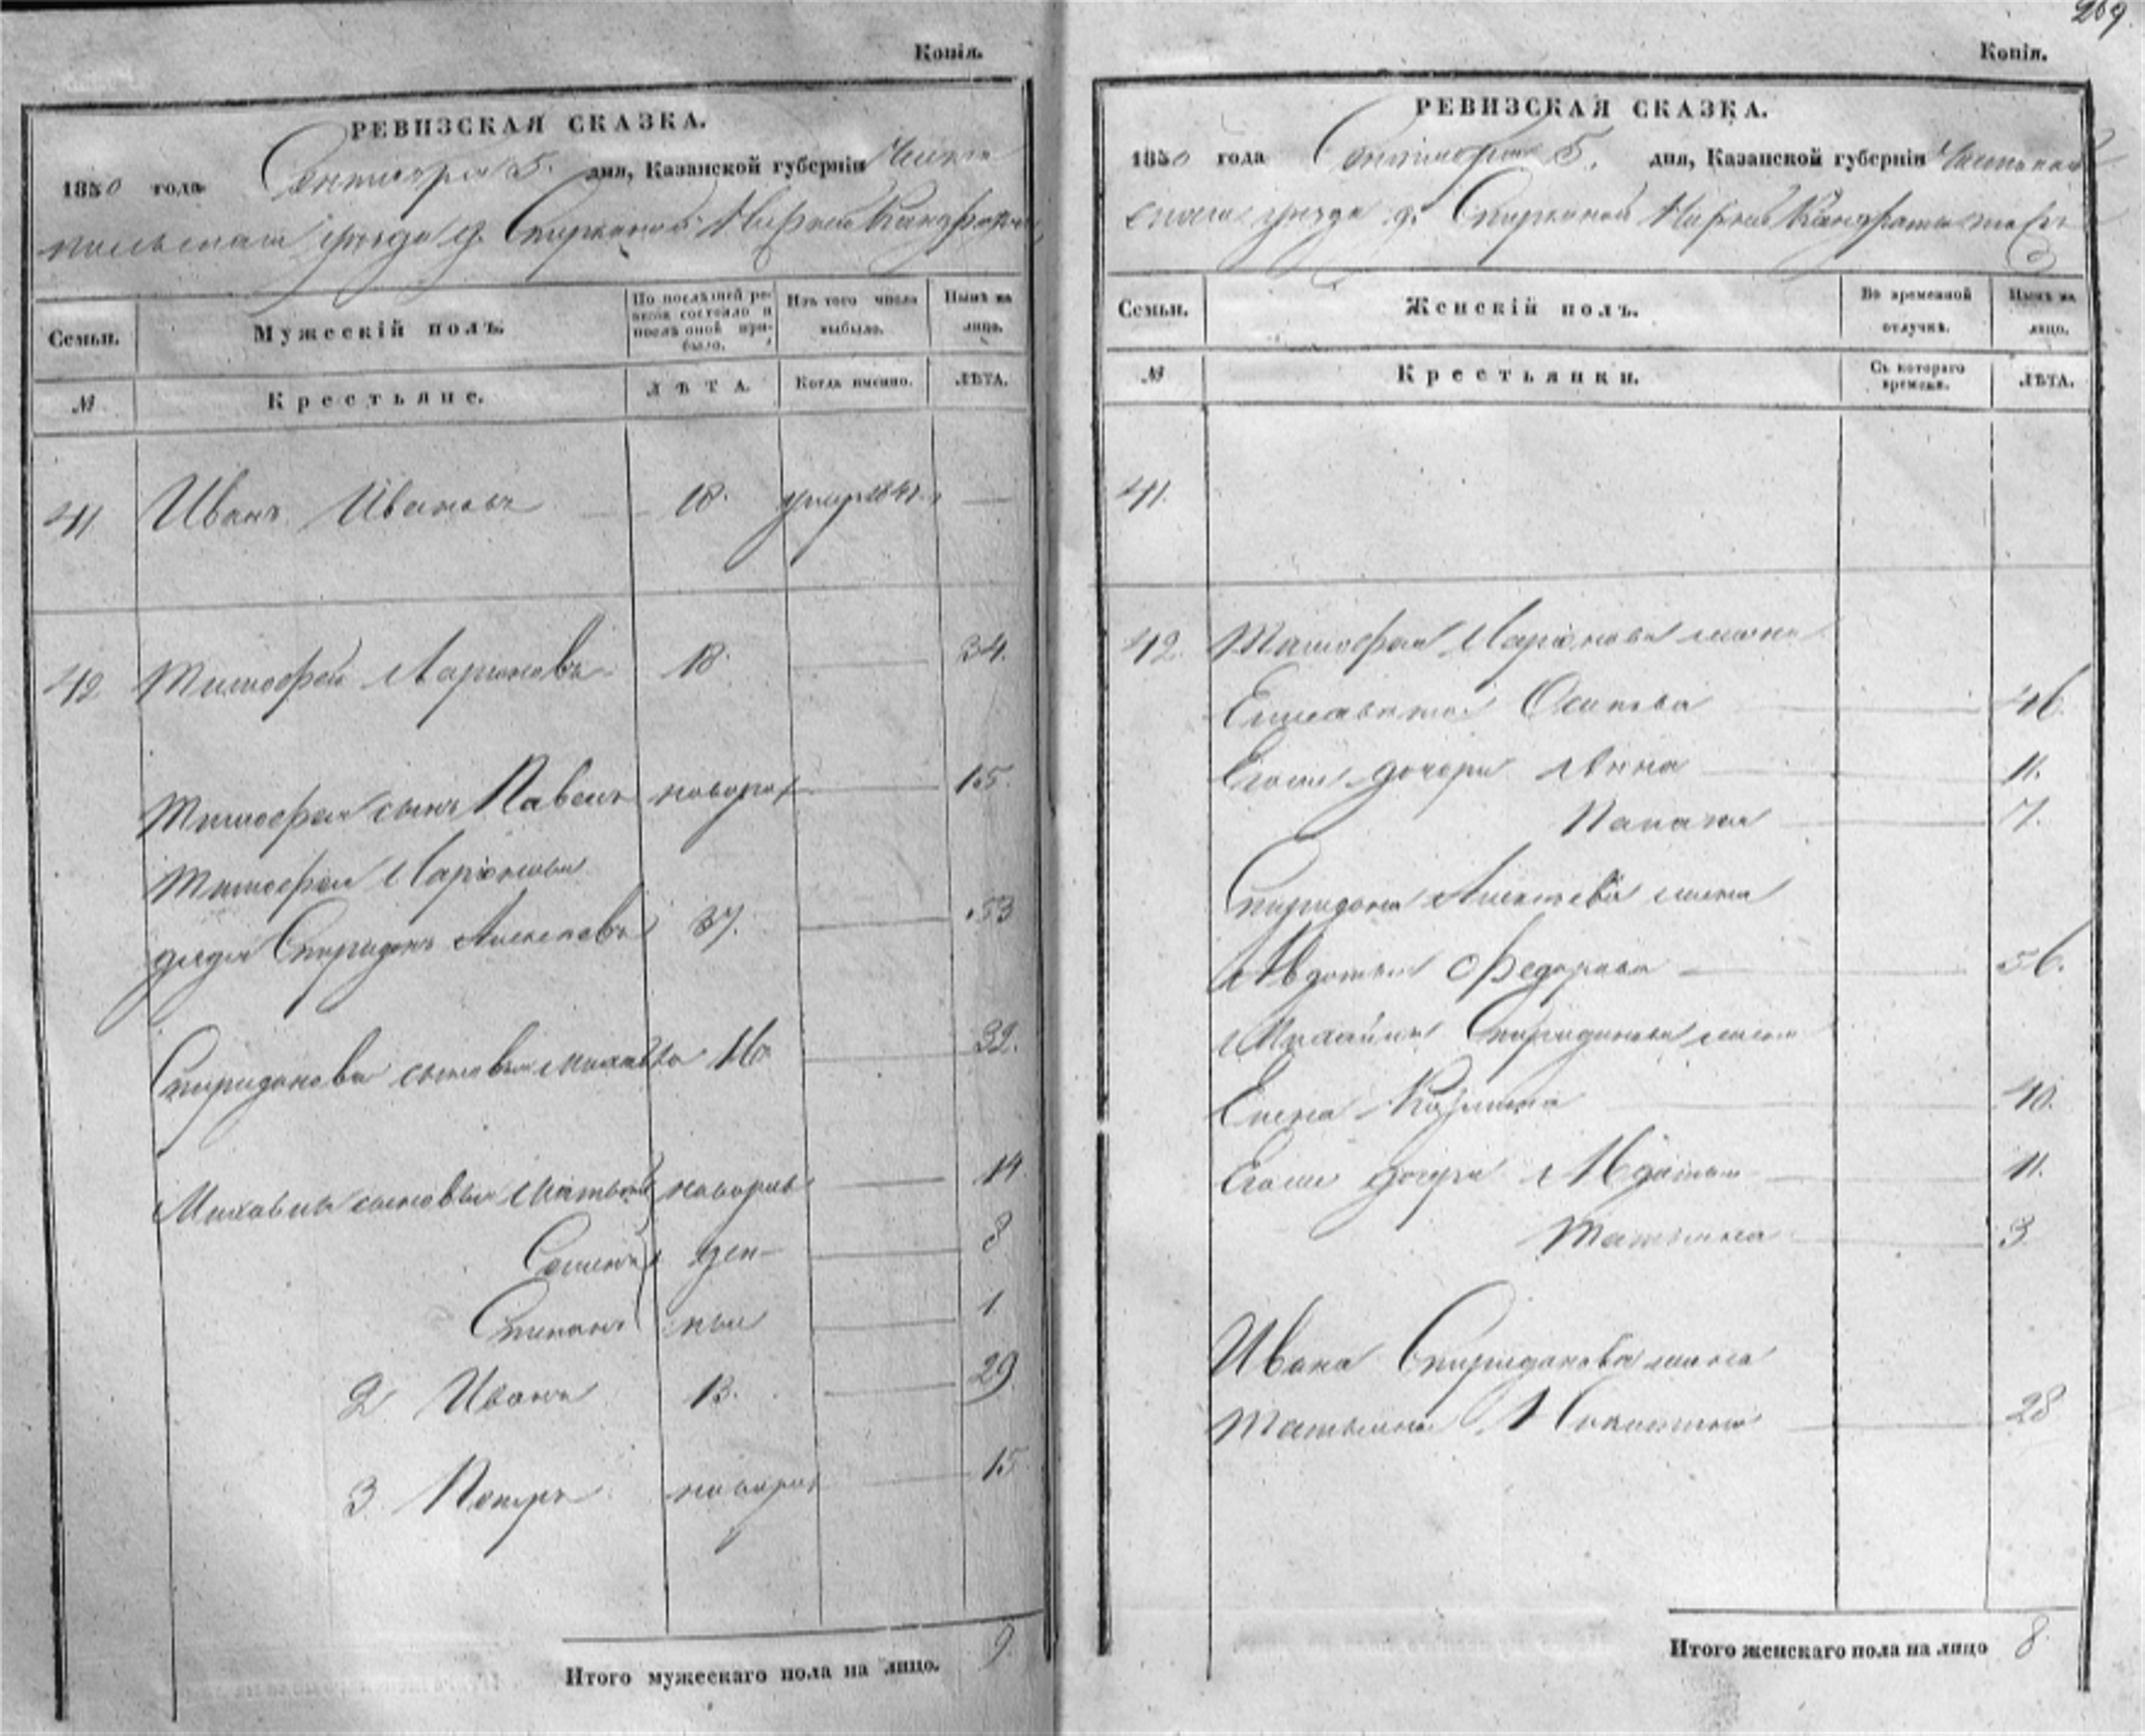 269
Копія.
РЕВИЗСКАЯ СКАЗКА.
1850 года Сентября 5. дня, Казанской губерніи Чисто
польскаго уѣзда д.
Семьи.
Мужескій полъ.
По послѣдней ре-
визіи состояло и
послѣ оной при-
было.
Изъ того числа
выбыло.
Нынѣ на
лицо.
№
Крестьяне.
ЛѢТА.
Когда именно.
ЛѢТА.
41 Иванъ Ивановъ 18. умер 1841. —
42 Тимофей Ларионовъ 18. 34.
Тимофея сынъ Павелъ новорож 15.
Тимофея Ларіонова
дядя Спиридонъ Алексеевъ 37. 53
Спиридоновы сыновья Михайла 16 32.
Михайлы сыновья Матвей новорож 14
Семенъ ден 8
Степанъ ные 1
2 Иванъ 13. 29
3 Петръ новорож 15
Итого мужескаго пола на лицо. 9.
Копія.
РЕВИЗСКАЯ СКАЗКА.
1850 года Сентября 5. дня, Казанской губерніи Чистополь
скаго уѣзда д.
Семьи.
Женскій полъ.
Во временной
отлучкѣ.
Нынѣ на
лицо.
№
Крестьянки.
Съ котораго
времени.
ЛѢТА.
41.
42. Тимофея Ларіонова жена
Елисавета Осипова 46.
Его же дочери Анна 11.
7.
Спиридона Алексеева жена
Авдотья Федорова 56.
Михайлы Спиридонова жена
Елена 40.
Его же дочери Авдотья 11.
Татьяна 3
Ивана Спиридонова жена
Татьяна 28
Итого женскаго пола на лицо 8